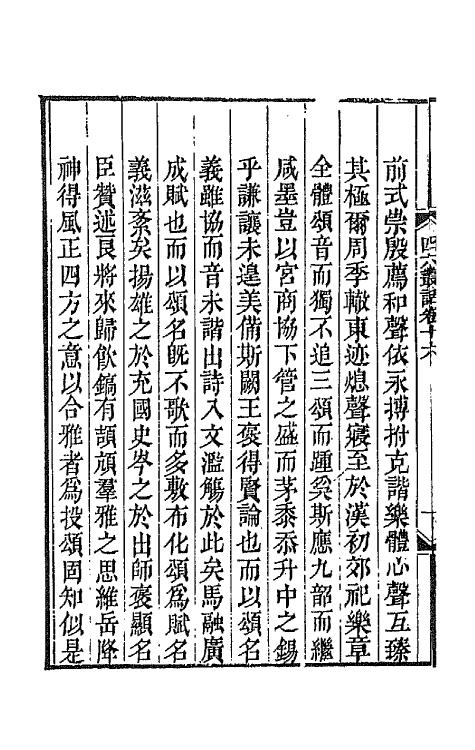 四六叢話卷十六
前式崇殷薦和聲依永搏拊克諧樂體心聲互臻
其極爾周季轍東迹熄聲寢至於漢初郊祀樂章
全體頌音而獨不追三頌而踵奚斯應九韶而繼
咸墨豈以宮商協下管之盛而茅黍忝升中之錫
乎謙讓未遑美備斯闕王褒得賢論也而以頌名
義雖協而音未諧出詩入文濫觴於此矣馬融廣
成賦也而以頌名旣不歌而多敷布化頌爲賦名
義滋紊矣揚雄之於充國史岑之於出師褒顯名
臣贊述良將來歸飮鎬有頡頏羣雅之思維岳降
神得風正四方之意以合雅者爲投頌固知似是